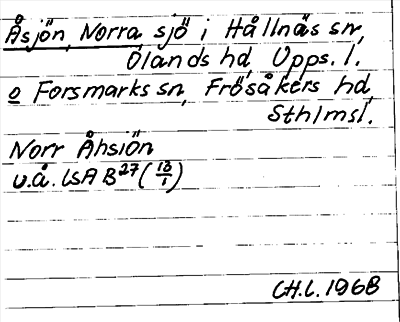 Åsjön, Norra, sjö i Hållnäs sn,
Olands hd, Upps. l.
o Forsmarks sn, Frösåkers hd,
Sthlmsl.
Norr Åhsiön
u.å. LSA B27 (13/1)
C.H.L. 1968